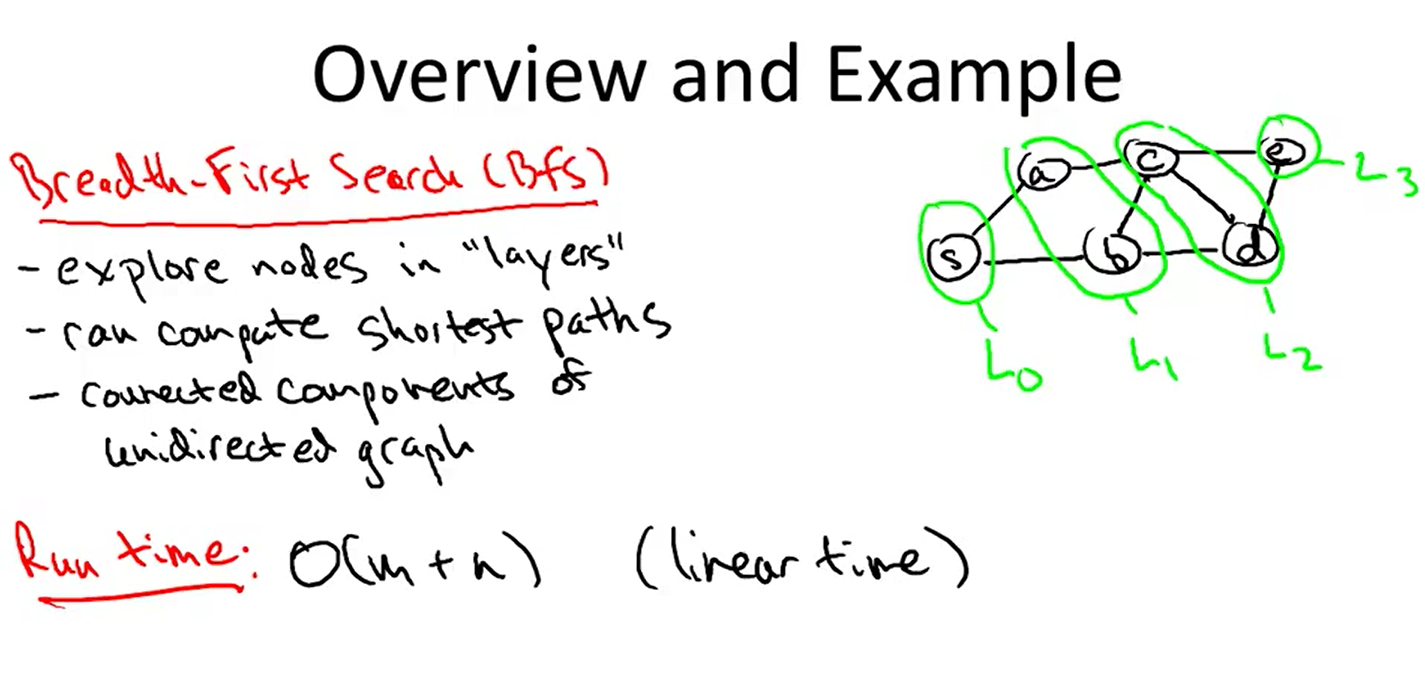 Overview and Example
Breadth-First Search (BFS)
- explore nodes in "layers"
- can compute shortest paths
- connected components of
undirected graph
Run time: O(m+n) (linear time)
s
a
b
c
d
e
L0
L1
L2
L3